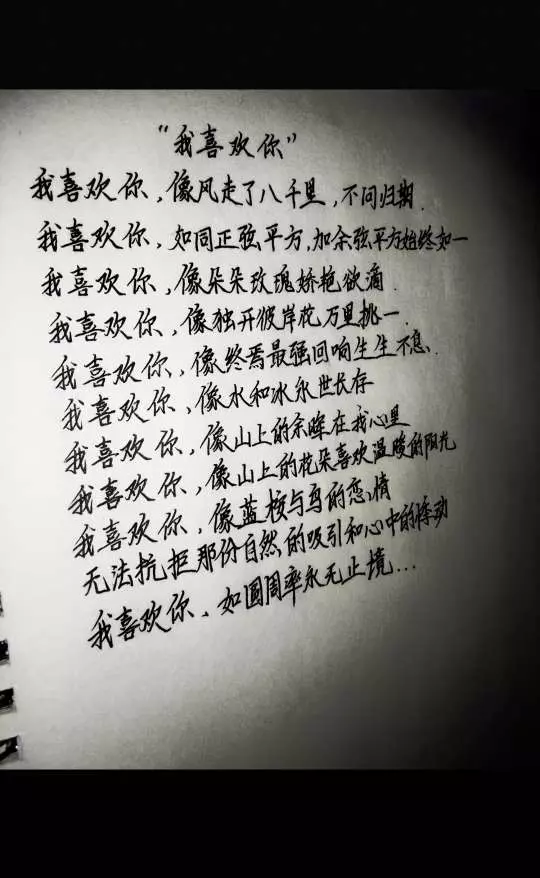 “我喜欢你”
我喜欢你，像风走了八千里，不问归期.
我喜欢你，如同正弦平方，加余弦平方始终如一
我喜欢你，像朵朵玫瑰娇艳欲滴.
我喜欢你，像独开彼岸花万里挑一.
我喜欢你，像终焉最强回响生生不息.
我喜欢你，像水和冰永世长存
我喜欢你，像山上的余晖在我心里
我喜欢你，像山上的花朵喜欢温暖的阳光
我喜欢你，像蓝桉与鸟的恋情
无法抗拒那份自然的吸引和心中的悸动
我喜欢你、如圆周率永无止境...